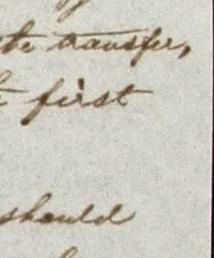 the transfer,
first
should